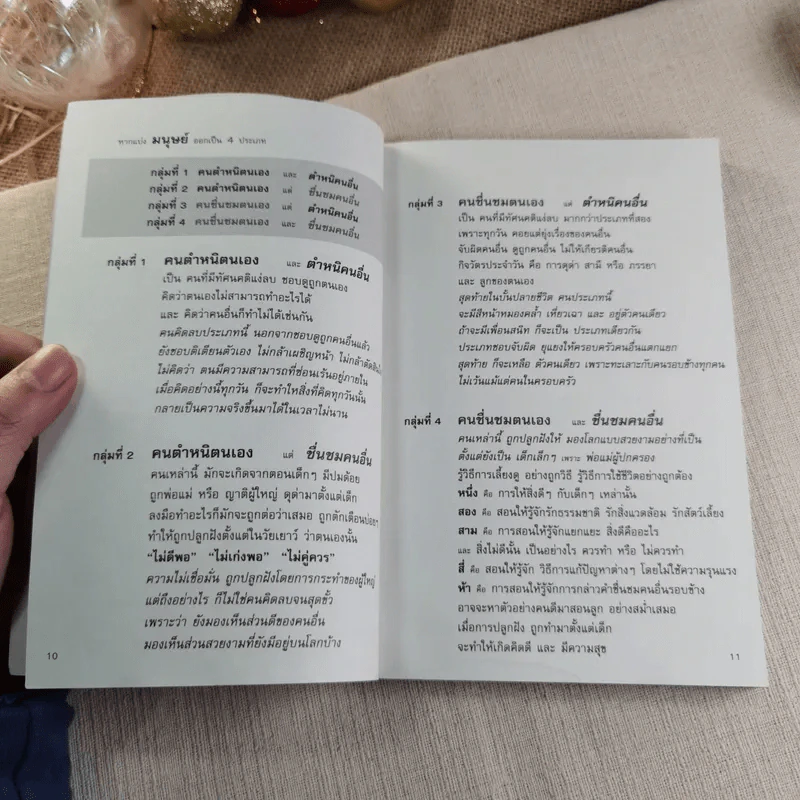 หากแบ่ง มนุษย์ ออกเป็น 4 ประเภท
กลุ่มที่ 1 คนตำหนิตนเอง และ ตำหนิคนอื่น
กลุ่มที่ 2 คนตำหนิตนเอง แต่ ชื่นชมคนอื่น
กลุ่มที่ 3 คนชื่นชมตนเอง แต่ ตำหนิคนอื่น
กลุ่มที่ 4 คนชื่นชมตนเอง และ ชื่นชมคนอื่น
กลุ่มที่ 1 คนตำหนิตนเอง และ ตำหนิคนอื่น
เป็น คนที่มีทัศนคติแง่ลบ ชอบดูถูกตนเอง
คิดว่าตนเองไม่สามารถทำอะไรได้
และ คิดว่าคนอื่นก็ทำไม่ได้เช่นกัน
คนคิดลบประเภทนี้ นอกจากชอบดูถูกคนอื่นแล้ว
ยังชอบติเตียนตัวเอง ไม่กล้าเผชิญหน้า ไม่กล้าตัดสินใจ
ไม่คิดว่า ตนมีความสามารถที่ซ่อนเร้นอยู่ภายใน
เมื่อคิดอย่างนี้ทุกวัน ก็จะทำให้สิ่งที่คิดทุกวันนั้น
กลายเป็นความจริงขึ้นมาได้ในเวลาไม่นาน
กลุ่มที่ 2 คนตำหนิตนเอง แต่ ชื่นชมคนอื่น
คนเหล่านี้ มักจะเกิดจากตอนเด็กๆ มีปมด้อย
ถูกพ่อแม่ หรือ ญาติผู้ใหญ่ ดุด่ามาตั้งแต่เด็ก
ลงมือทำอะไรก็มักจะถูกต่อว่าเสมอ ถูกตักเตือนบ่อยๆ
ทำให้ถูกปลูกฝังตั้งแต่ในวัยเยาว์ ว่าตนเองนั้น
“ไม่ดีพอ” “ไม่เก่งพอ” “ไม่คู่ควร”
ความไม่เชื่อมั่น ถูกปลูกฝังโดยการกระทำของผู้ใหญ่
แต่ถึงอย่างไร ก็ไม่ใช่คนคิดลบจนสุดขั้ว
เพราะว่า ยังมองเห็นส่วนดีของคนอื่น
มองเห็นส่วนสวยงามที่ยังมีอยู่บนโลกบ้าง
10
กลุ่มที่ 3 คนชื่นชมตนเอง แต่ ตำหนิคนอื่น
เป็น คนที่มีทัศนคติแง่ลบ มากกว่าประเภทที่สอง
เพราะทุกวัน คอยแต่ยุ่งเรื่องของคนอื่น
จับผิดคนอื่น ดูถูกคนอื่น ไม่ให้เกียรติคนอื่น
กิจวัตรประจำวัน คือ การดุด่า สามี หรือ ภรรยา
และ ลูกของตนเอง
สุดท้ายในบั้นปลายชีวิต คนประเภทนี้
จะมีสีหน้าหมองคล้ำ เหี่ยวเฉา และ อยู่ตัวคนเดียว
ถ้าจะมีเพื่อนสนิท ก็จะเป็น ประเภทเดียวกัน
ประเภทชอบจับผิด ยุแยงให้ครอบครัวคนอื่นแตกแยก
สุดท้าย ก็จะเหลือ ตัวคนเดียว เพราะทะเลาะกับคนรอบข้างทุกคน
ไม่เว้นแม้แต่คนในครอบครัว
กลุ่มที่ 4 คนชื่นชมตนเอง และ ชื่นชมคนอื่น
คนเหล่านี้ ถูกปลูกฝังให้ มองโลกแบบสวยงามอย่างที่เป็น
ตั้งแต่ยังเป็น เด็กเล็กๆ เพราะ พ่อแม่ผู้ปกครอง
รู้วิธีการเลี้ยงดู อย่างถูกวิธี รู้วิธีการใช้ชีวิตอย่างถูกต้อง
หนึ่ง คือ การให้สิ่งดีๆ กับเด็กๆ เหล่านั้น
สอง คือ สอนให้รู้จักรักธรรมชาติ รักสิ่งแวดล้อม รักสัตว์เลี้ยง
สาม คือ การสอนให้รู้จักแยกแยะ สิ่งดีคืออะไร
และ สิ่งไม่ดีนั้น เป็นอย่างไร ควรทำ หรือ ไม่ควรทำ
สี่ คือ สอนให้รู้จัก วิธีการแก้ปัญหาต่างๆ โดยไม่ใช้ความรุนแรง
ห้า คือ การสอนให้รู้จักการกล่าวคำชื่นชมคนอื่นรอบข้าง
อาจจะหาตัวอย่างคนดีมาสอนลูก อย่างสม่ำเสมอ
เมื่อการปลูกฝัง ถูกทำมาตั้งแต่เด็ก
จะทำให้เกิดคิดดี และ มีความสุข
11